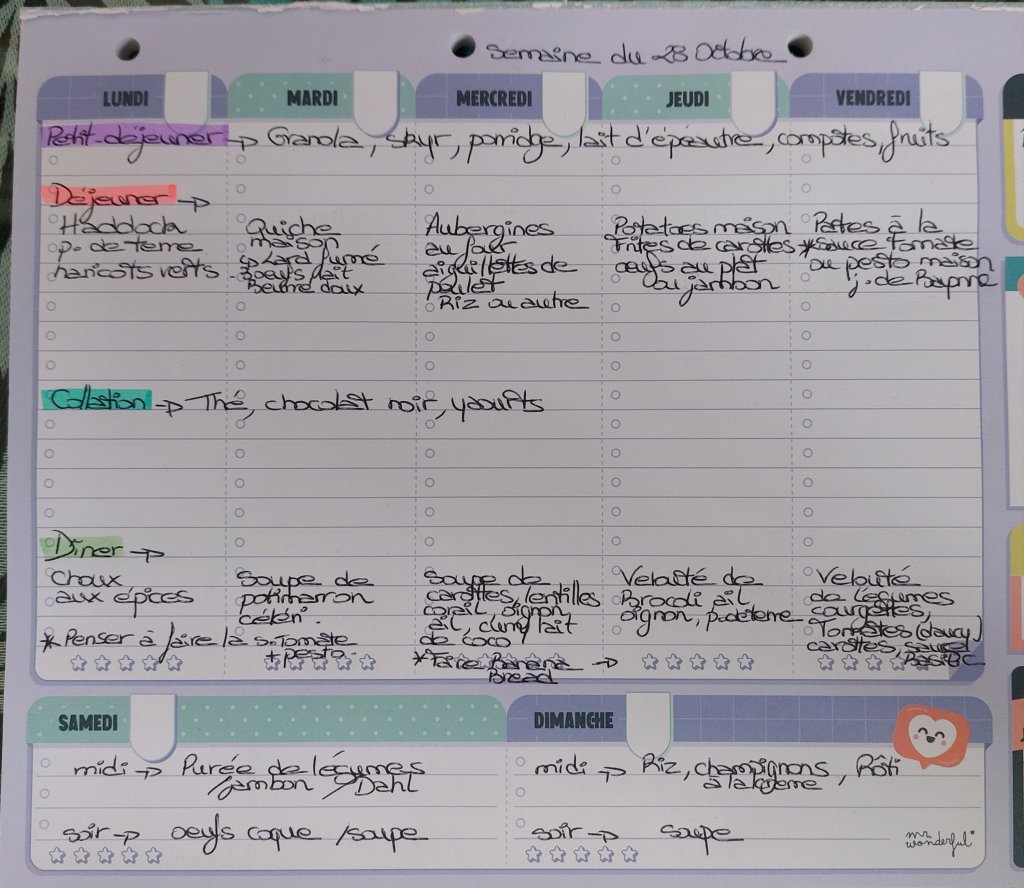 Semaine du 28 Octobre
LUNDI
MARDI
MERCREDI
JEUDI
VENDREDI
Petit-déjeuner → Granola, skyr, porridge, lait d'épeautre, compotes, fruits
Déjeuner →
Haddock
p. de terre
haricots verts
Quiche
maison
↳ Lard fumé
3 oeufs lait
Beurre doux
Aubergines
au four
aiguillettes de
poulet
Riz ou autre
Potatoes maison
Frites de carottes
oeufs au plat
ou jambon
Pates à la
*sauce tomate
ou pesto maison
j. de Bayonne
Collation → Thé, chocolat noir, yaourts
Diner →
Choux
aux épices
Soupe de
potimarron
céleri.
Soupe de
carottes, lentilles
corail, oignon
ail, curry lait
de coco
Velouté de
Brocoli ail
oignon, p.deterre
Velouté
de légumes
courgettes,
Tomates (daucy)
carottes,
Basilic
* Penser à faire la s.Tomate
+ pesto.
*Faire Banana →
Bread
SAMEDI
midi → Purée de légumes
/jambon /Dahl
soir → oeufs coque /soupe
DIMANCHE
midi → Riz, champignons, Rôti
à la crème
soir → soupe
mr.
wonderful*